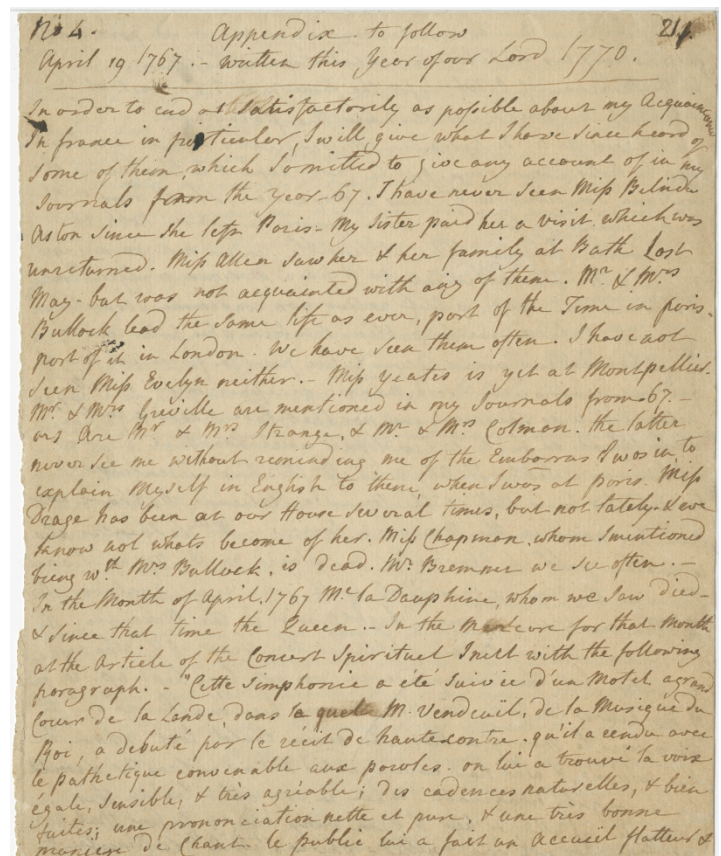 No 4. Appendix to follow 211.
April 19 1767. - written this Year of our Lord 1770.
In order to end as satisfactorily as possible about my Acquaintance
In france in particular, I will give what I have since heard of
some of them, which I omitted to give any account of in my
Journals from the year - 67. I have never seen Miss Belinda
Aston since she left Paris - My Sister paid her a visit which was
unreturned. Miss Allen saw her & her family at Bath Last
May - but was not acquainted with any of them. Mr. & Mrs
Bullock lead the same life as ever, part of the Time in paris.
part of it in London. We have seen them often. I have not
seen Miss Evelyn neither. - Miss Yeates is yet at Montpellier.
Mr. & Mrs Greville are mentioned in my Journals from - 67. -
as Are Mr & Mrs Strange, & Mr & Mrs Colman. the latter
never see me without reminding me of the Embarras I was in, to
explain Myself in English to them, when I was at paris. Miss
Drage has been at our House several times, but not lately - & we
know not whats become of her. Miss Chapman, whom I mentioned
being wth. Mrs Bullock, is dead. Mr. Bremner we see often. -
In the Month of April, 1767 Me. la Dauphine, whom we saw died -
& since that time the Queen. - In the Mercure for that Month
at the Article of the Concert Spirituel I met with the following
paragraph. - "Cette Simphonie a eté suivie d'un Motet a grand
Coeur de la Lande, dans le quel M. Vendeuil, de la Musique du
Roi, a debuté par le récit de haute-contre. qu'il a rendu avec
le pathetique convenable aux paroles. on lui a trouvé la voix
égale, sensible, & très agréable; des cadences naturelles, & bien
faites; une prononciation nette et pure, & une très bonne
maniere de Chant. le public lui a fait un Accueil flatteur &